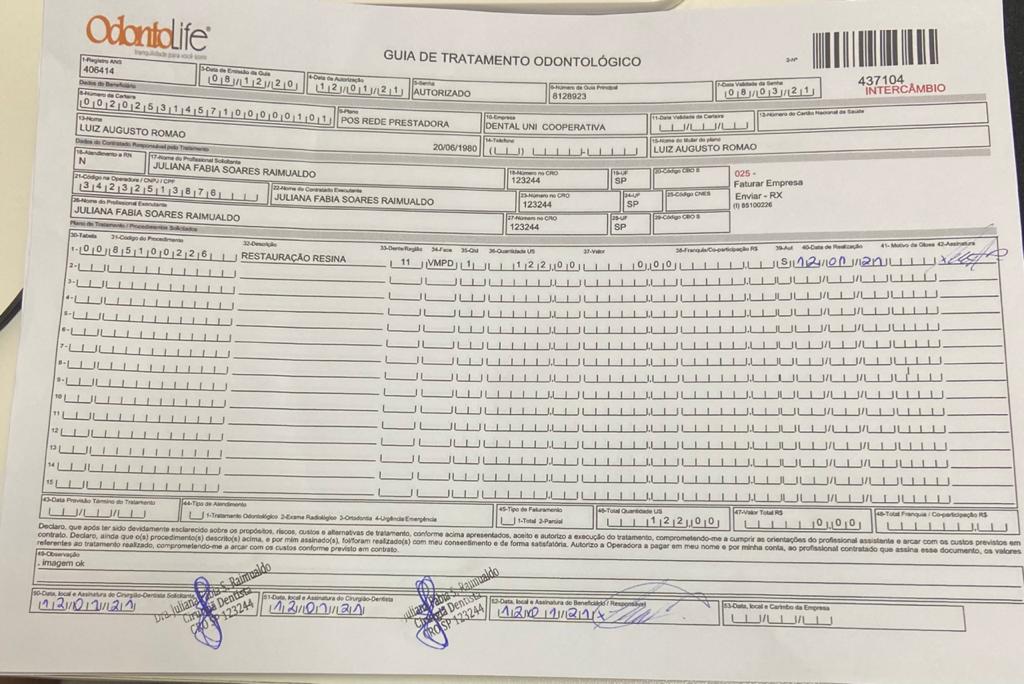 OdontoLife®
tranquilidade para você sorrir
GUIA DE TRATAMENTO ODONTOLÓGICO
2-Nº
437104
INTERCÂMBIO
1-Registro ANS
406414
3-Data de Emissão da Guia
08/12/20
4-Data da Autorização
12/01/21
5-Senha
AUTORIZADO
6-Número da Guia Principal
8128923
7-Data Validade da Senha
08/03/21
Dados do Beneficiário
8-Número da Carteira
00202531457100000101
9-Plano
POS REDE PRESTADORA
10-Empresa
DENTAL UNI COOPERATIVA
11-Data Validade da Carteira
12-Número do Cartão Nacional de Saúde
13-Nome
LUIZ AUGUSTO ROMAO
20/06/1980
14-Telefone
15-Nome do titular do plano
LUIZ AUGUSTO ROMAO
Dados do Contratado Responsável pelo Tratamento
16-Atendimento a RN
N
17-Nome do Profissional Solicitante
JULIANA FABIA SOARES RAIMUALDO
18-Número no CRO
123244
19-UF
SP
20-Código CBO S
025 -
Faturar Empresa
Enviar - RX
(I) 85100226
21-Código na Operadora / CNPJ / CPF
34232513876
22-Nome do Contratado Executante
JULIANA FABIA SOARES RAIMUALDO
23-Número no CRO
123244
24-UF
SP
25-Código CNES
26-Nome do Profissional Executante
JULIANA FABIA SOARES RAIMUALDO
27-Número no CRO
123244
28-UF
SP
29-Código CBO S
Plano de Tratamento / Procedimentos Solicitados
30-Tabela 31-Código do Procedimento 32-Descrição 33-Dente/Região 34-Face 35-Qtd 36-Quantidade US 37-Valor 38-Franquia/Co-participação R$ 39-Aut 40-Data de Realização 41- Motivo da Glosa 42-Assinatura
1- 00 85100226 RESTAURAÇÃO RESINA 11 VMPD 1 122,00 0,00 S 12/01/21 x
2-
3-
4-
5-
6-
7-
8-
9-
10
11
12
13
14
15
43-Data Previsão Término do Tratamento
44-Tipo de Atendimento
1-Tratamento Odontológico 2-Exame Radiológico 3-Ortodontia 4-Urgência/Emergência
45-Tipo de Faturamento
1-Total 2-Parcial
46-Total Quantidade US
122,00
47-Valor Total R$
0,00
48-Total Franquia / Co-participação R$
Declaro, que após ter sido devidamente esclarecido sobre os propósitos, riscos, custos e alternativas de tratamento, conforme acima apresentados, aceito e autorizo a execução do tratamento, comprometendo-me a cumprir as orientações do profissional assistente e arcar com os custos previstos em
contrato. Declaro, ainda que o(s) procedimento(s) descrito(s) acima, e por mim assinado(s), foi/foram realizado(s) com meu consentimento e de forma satisfatória. Autorizo a Operadora a pagar em meu nome e por minha conta, ao profissional contratado que assina esse documento, os valores
referentes ao tratamento realizado, comprometendo-me a arcar com os custos conforme previsto em contrato.
49-Observação
. imagem ok
50-Data, local e Assinatura do Cirurgião-Dentista Solicitante
12/01/21
Dra. Juliana Fabia S. Raimualdo
Cirurgiã Dentista
CRO SP 123244
51-Data, local e Assinatura do Cirurgião-Dentista
12/01/21
Juliana Fabia S. Raimualdo
Cirurgiã Dentista
CRO SP 123244
52-Data, local e Assinatura do Beneficiário / Responsável
12/01/21 x
53-Data, local e Carimbo da Empresa